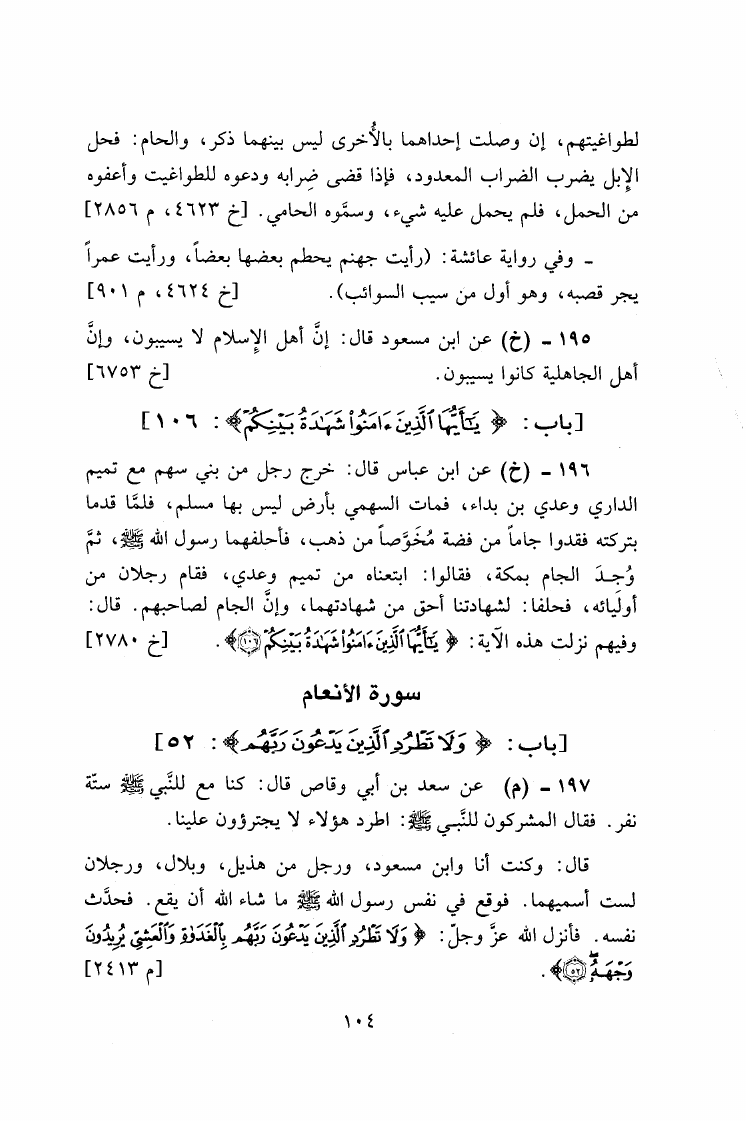 لطواغيتهم، إن وصلت إحداهما بالأُخرى ليس بينهما ذكر، والحام: فحل
الإبل يضرب الضراب المعدود، فإذا قضى ضِرابه ودعوه للطواغيت وأعفوه
من الحمل، فلم يحمل عليه شيء، وسمَّوه الحامي. [خ ٤٦٢٣، م ٢٨٥٦]
- وفي رواية عائشة: (رأيت جهنم يحطم بعضها بعضاً، ورأيت عمراً
يجر قصبه، وهو أول من سيب السوائب). [خ ٤٦٢٤، م ٩٠١]
١٩٥ - (خ) عن ابن مسعود قال: إنَّ أهل الإسلام لا يسيبون، وإنَّ
أهل الجاهلية كانوا يسيبون. [خ ٦٧٥٣]
[باب: ﴿ يَٰٓأَيُّهَا ٱلَّذِينَ ءَامَنُوا۟ شَهَٰدَةُ بَيْنِكُمْ﴾: ١٠٦]
١٩٦ - (خ) عن ابن عباس قال: خرج رجل من بني سهم مع تميم
الداري وعدي بن بداء، فمات السهمي بأرض ليس بها مسلم، فلمَّا قدما
بتركته فقدوا جاماً من فضة مُخَوَّصاً من ذهب، فأحلفهما رسول الله ﷺ، ثمَّ
وُجِدَ الجام بمكة، فقالوا: ابتعناه من تميم وعدي، فقام رجلان من
أوليائه، فحلفا: لشهادتنا أحق من شهادتهما، وإنَّ الجام لصاحبهم. قال:
وفيهم نزلت هذه الآية: ﴿ يَٰٓأَيُّهَا ٱلَّذِينَ ءَامَنُوا۟ شَهَٰدَةُ بَيْنِكُمْ ۝١٠٦﴾. [خ ٢٧٨٠]
سورة الأنعام
[باب: ﴿ وَلَا تَطْرُدِ ٱلَّذِينَ يَدْعُونَ رَبَّهُم﴾: ٥٢]
١٩٧ - (م) عن سعد بن أبي وقاص قال: كنا مع للنَّبي ﷺ ستَّة
نفر. فقال المشركون للنَّبي ﷺ: اطرد هؤلاء لا يجترؤون علينا.
قال: وكنت أنا وابن مسعود، ورجل من هذيل، وبلال، ورجلان
لست أسميهما. فوقع في نفس رسول الله ﷺ ما شاء الله أن يقع. فحدَّث
نفسه. فأنزل الله عزَّ وجلّ: ﴿ وَلَا تَطْرُدِ ٱلَّذِينَ يَدْعُونَ رَبَّهُم بِٱلْغَدَوٰةِ وَٱلْعَشِىِّ يُرِيدُونَ
وَجْهَهُۥ ۖ ۝٥٢﴾. [م ٢٤١٣]
١٠٤